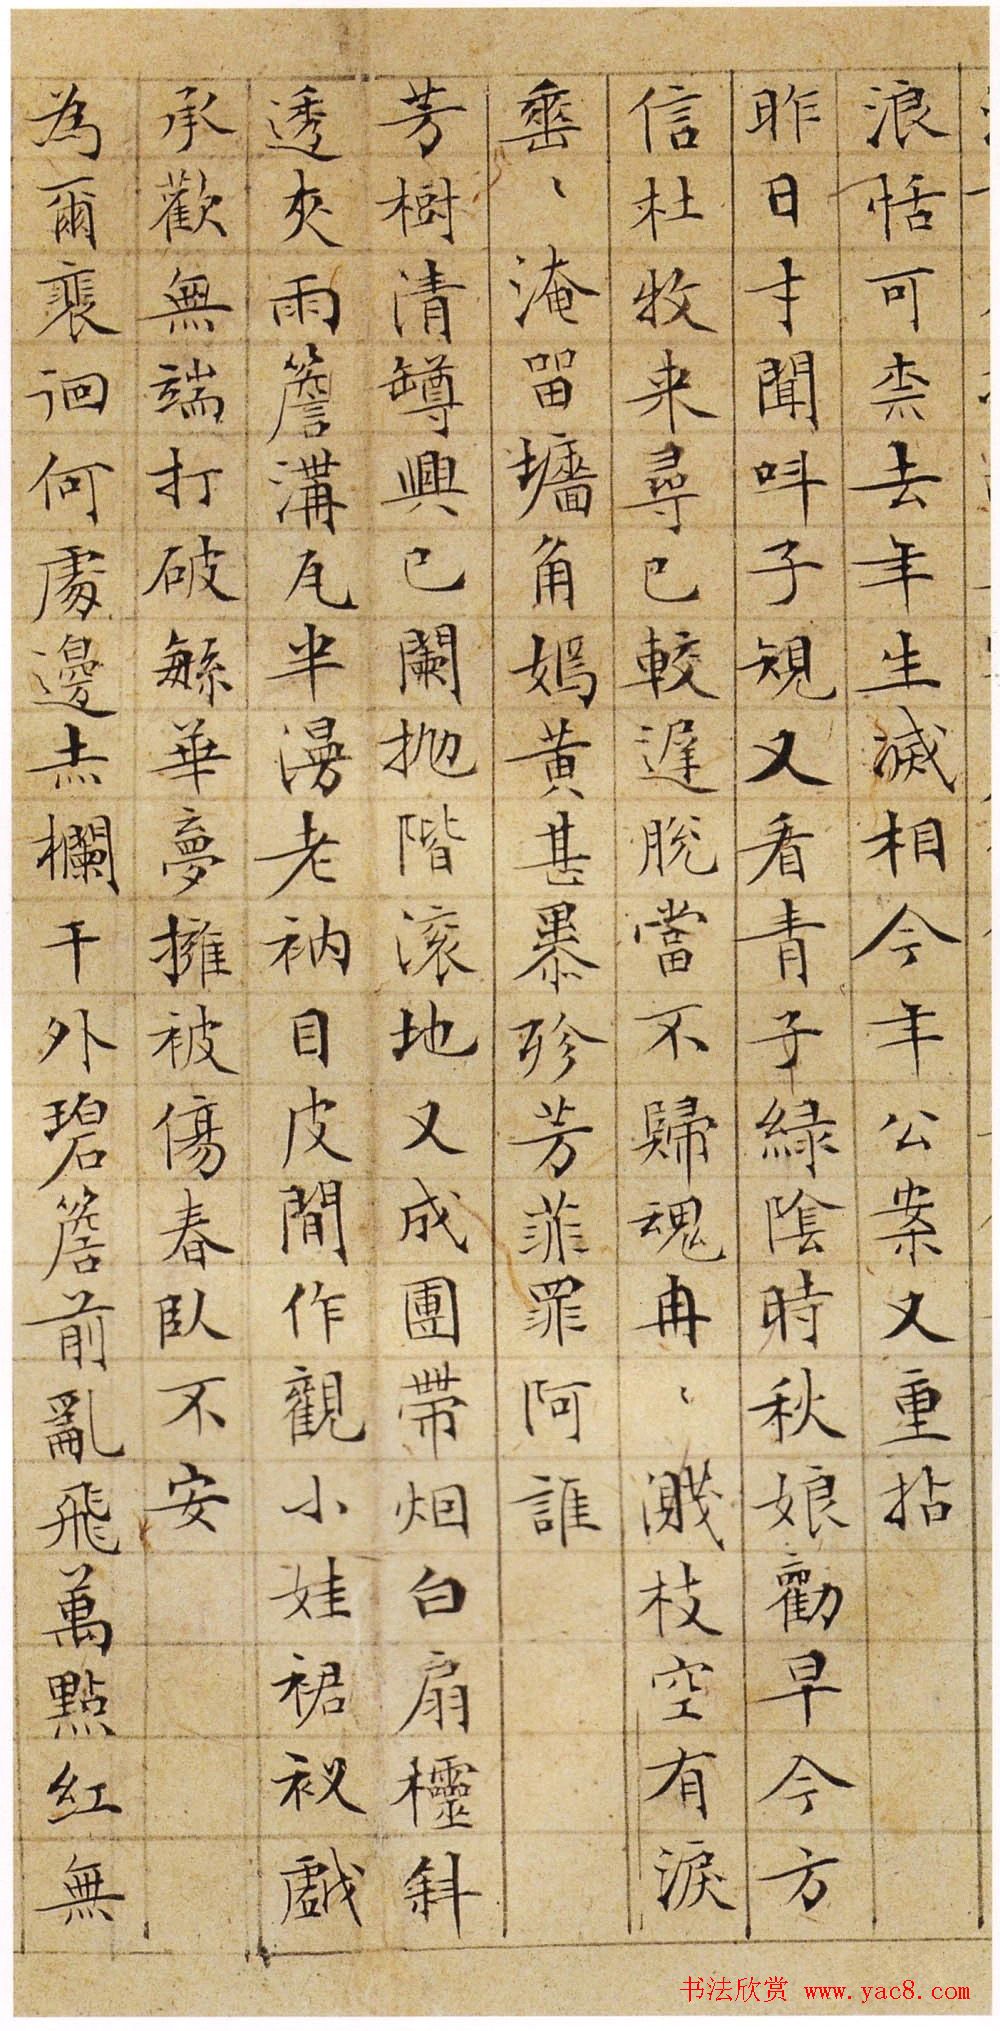 浪恬可柰去年生滅相今年公案又重拈
昨日才聞呌子規又看青子緑陰時秋娘勸早今方
信杜牧来尋已較遅脫當不歸魂冉、濺枝空有淚
垂、淹留墻角嫣黄甚暴殄芳菲罪阿誰
芳樹清罇興已闌抛階滚地又成團帶烟白扇櫺斜
透夾雨簷溝瓦半漫老衲目皮閒作觀小娃裙衩戲
承歡無端打破繁華夢擁被傷春臥不安
為爾裵徊何處邊赤欄干外碧簷前亂飛萬點紅無
书法欣赏 www.yac8.com